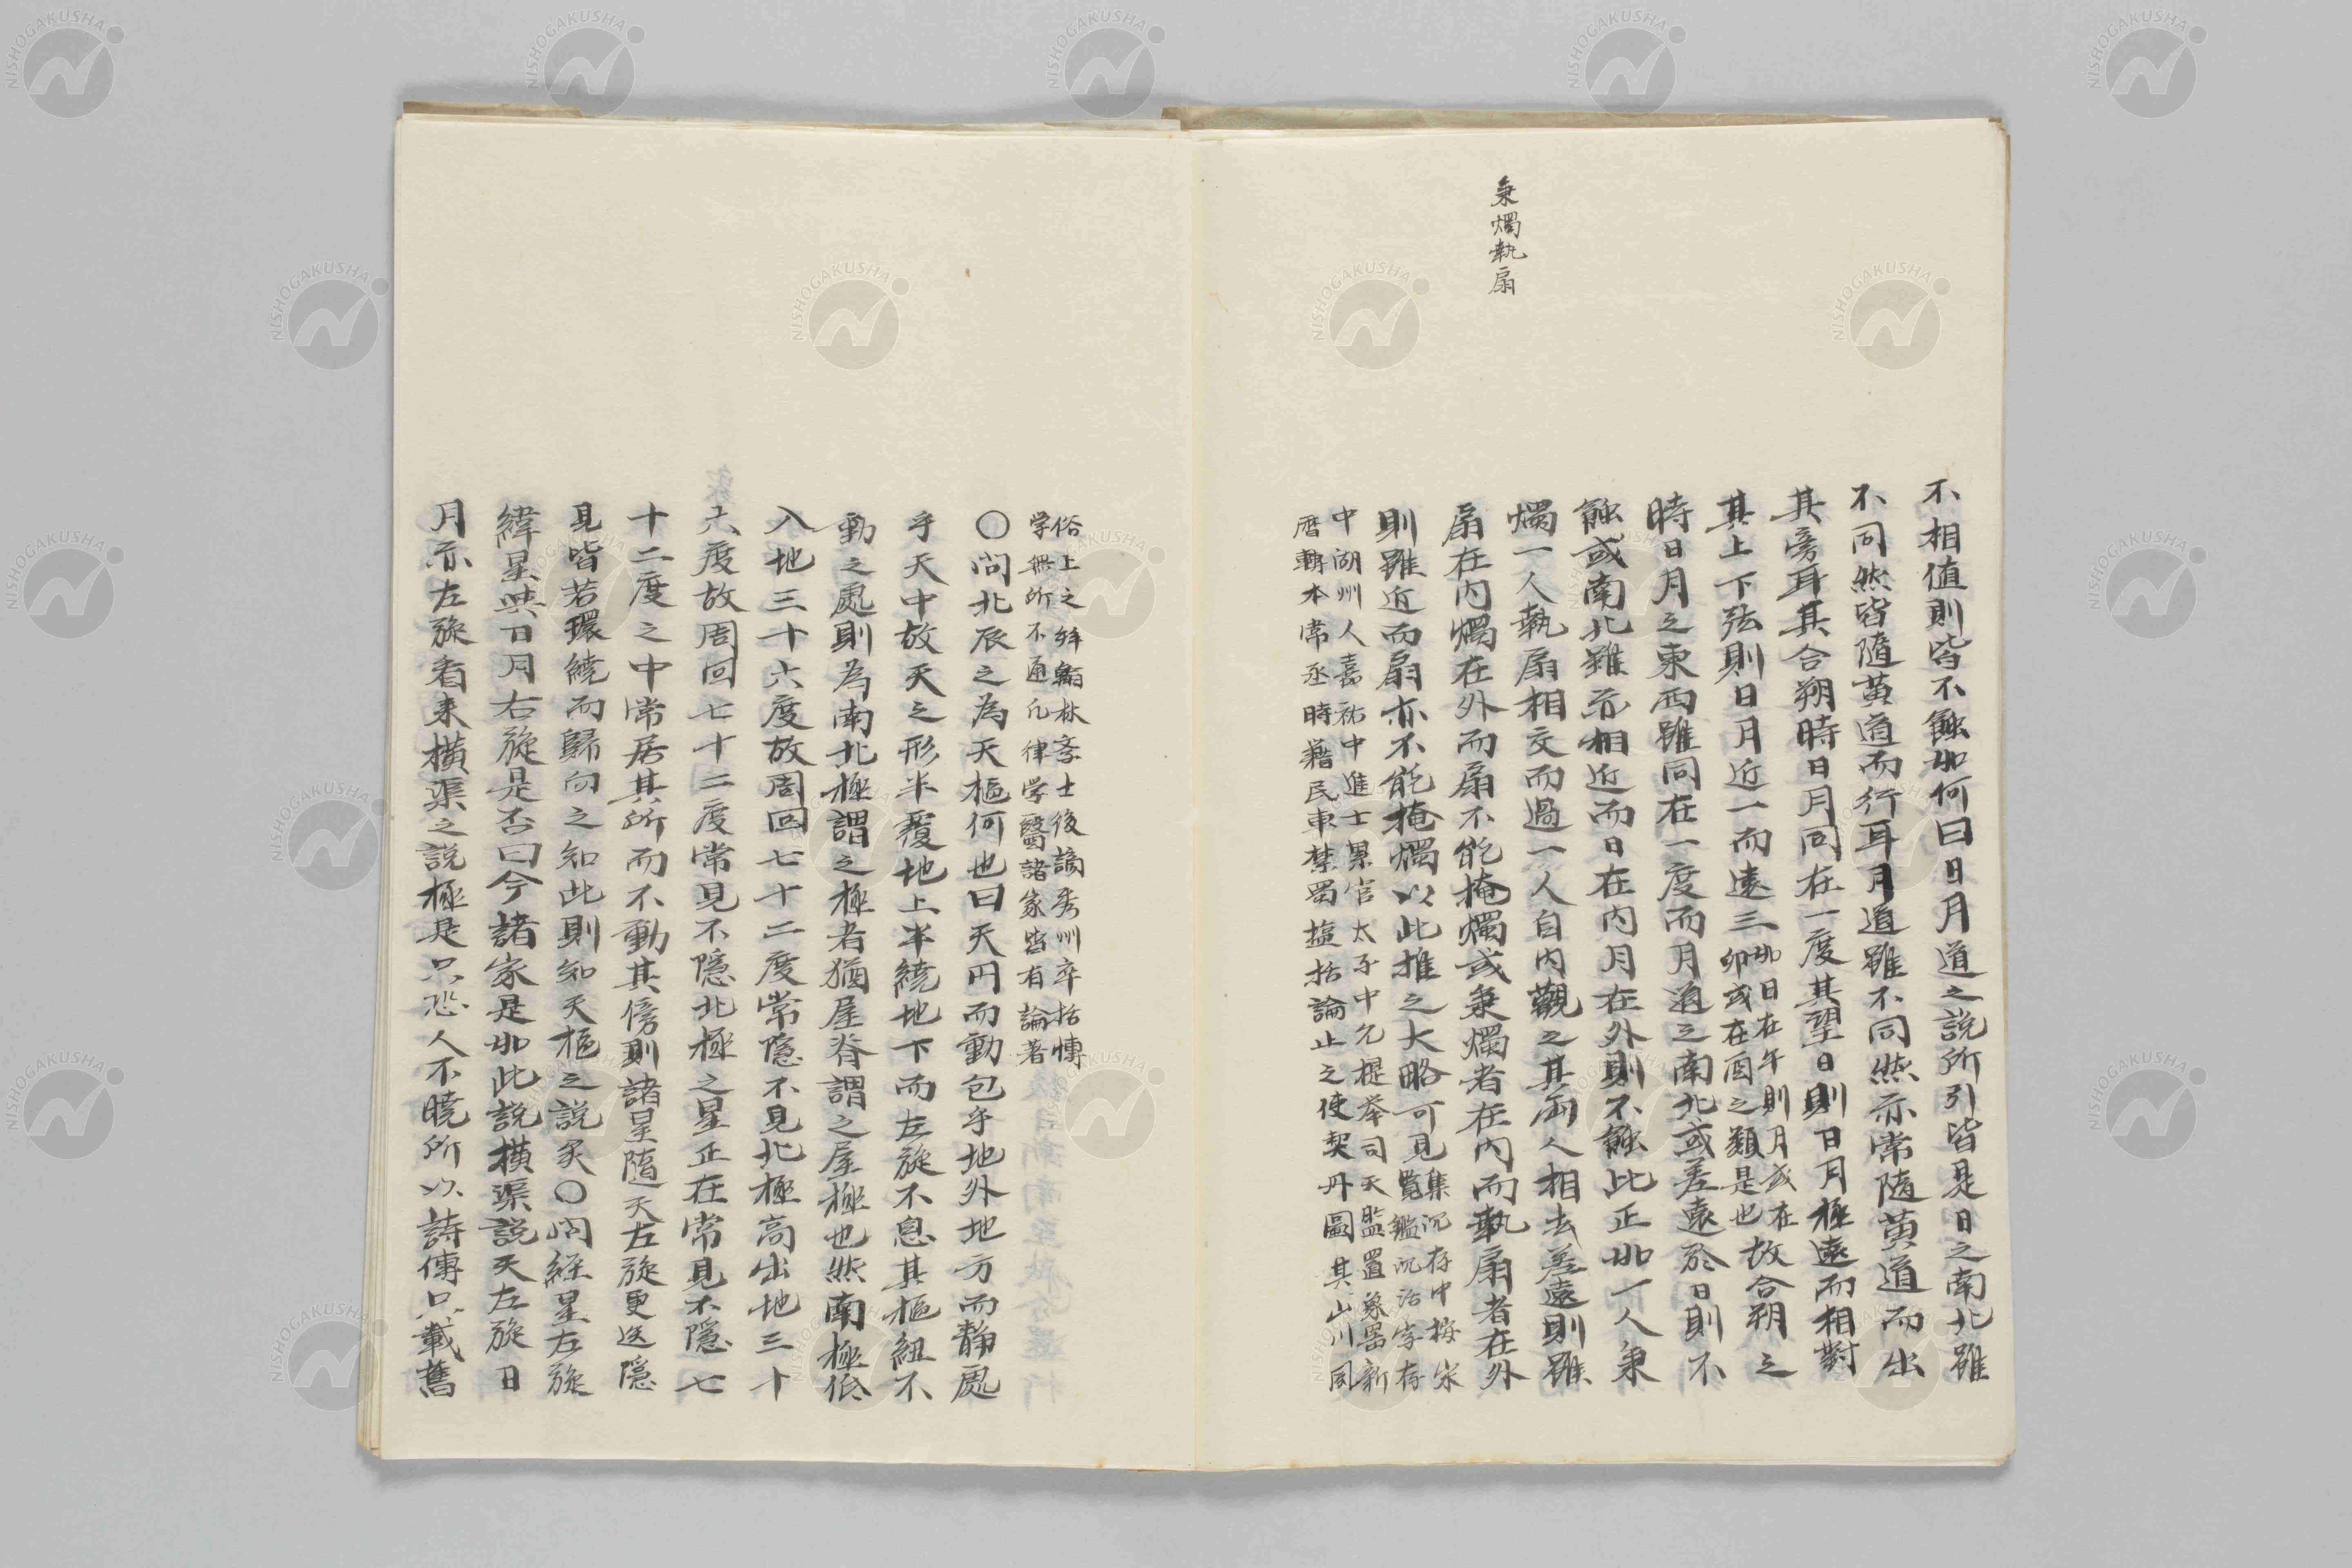 秉燭執扇
不相值則皆不蝕如何曰日月道之説所引皆是日之南北雖
不同然皆隨黄道而行耳月道雖不同然亦常隨黄道而出
其旁耳其合朔時日月同在一度其望日則日月極遠而相對
其上下弦則日月近一而遠三如日在午則月或在卯或在酉之類是也故合朔之
時日月之東西雖同在一度而月道之南北或差遠於日則不
蝕或南北雖亦相近而日在内月在外則不蝕此正如一人秉
燭一人執扇相交而過一人自内觀之其両人相去差遠則雖
扇在内燭在外而扇不能掩燭或秉燭者在内而執扇者在外
則雖近而扇亦不能掩燭以此推之大略可見集沉存中按宋覧鑑沉活字存
中湖州人嘉祐中進士累官太子中允提挙司天監置象器新
暦轉本常丞時籍民車禁蜀塩括論止之使契丹圖其山川風
俗上之拜翰林斈士後謫秀州卒括愽
学無所不通凡律学醫諸家皆有論著
〇問北辰之為天樞何也曰天円而動包乎地外地方而静處
乎天中故天之形半覆地上半繞地下而左旋不息其樞紐不
動之處則為南北極謂之極者猶屋脊謂之屋極也然南極低
入地三十六度故周回七十二度常隠不見北極高出地三十
六度故周回七十二度常見不隠北極之星正在常見不隠七
十二度之中常居其所而不動其傍則諸星隨天左旋更迭隠
見皆若環繞而歸向之知此則知天樞之説矣〇問経星左旋
緯星與日月右旋是否曰今諸家是如此説横渠説天左旋日
月亦左旋看来横渠之説極是只恐人不曉所以詩傳只載舊
NISHOGAKUSHA